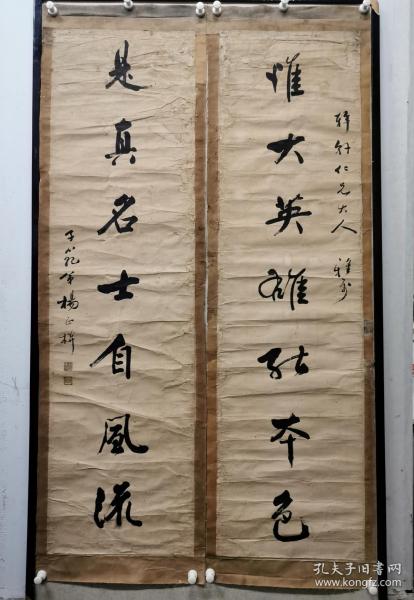 仁兄大人 雅
惟大英雄能本色
是真名士自風流
子範弟楊正
孔夫子旧书网
www.kongfz.com